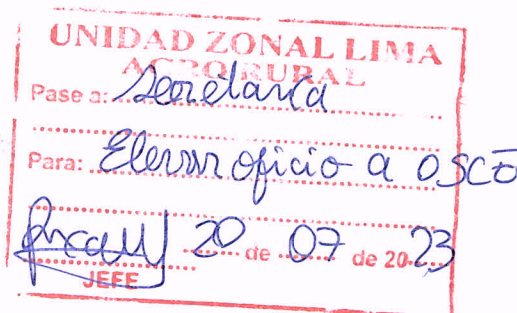 UNIDAD ZONAL LIMA
AGRO RURAL
Pase a: Secretaría
Para: Elevar oficio a OSCE
20 de 07 de 2023
JEFE